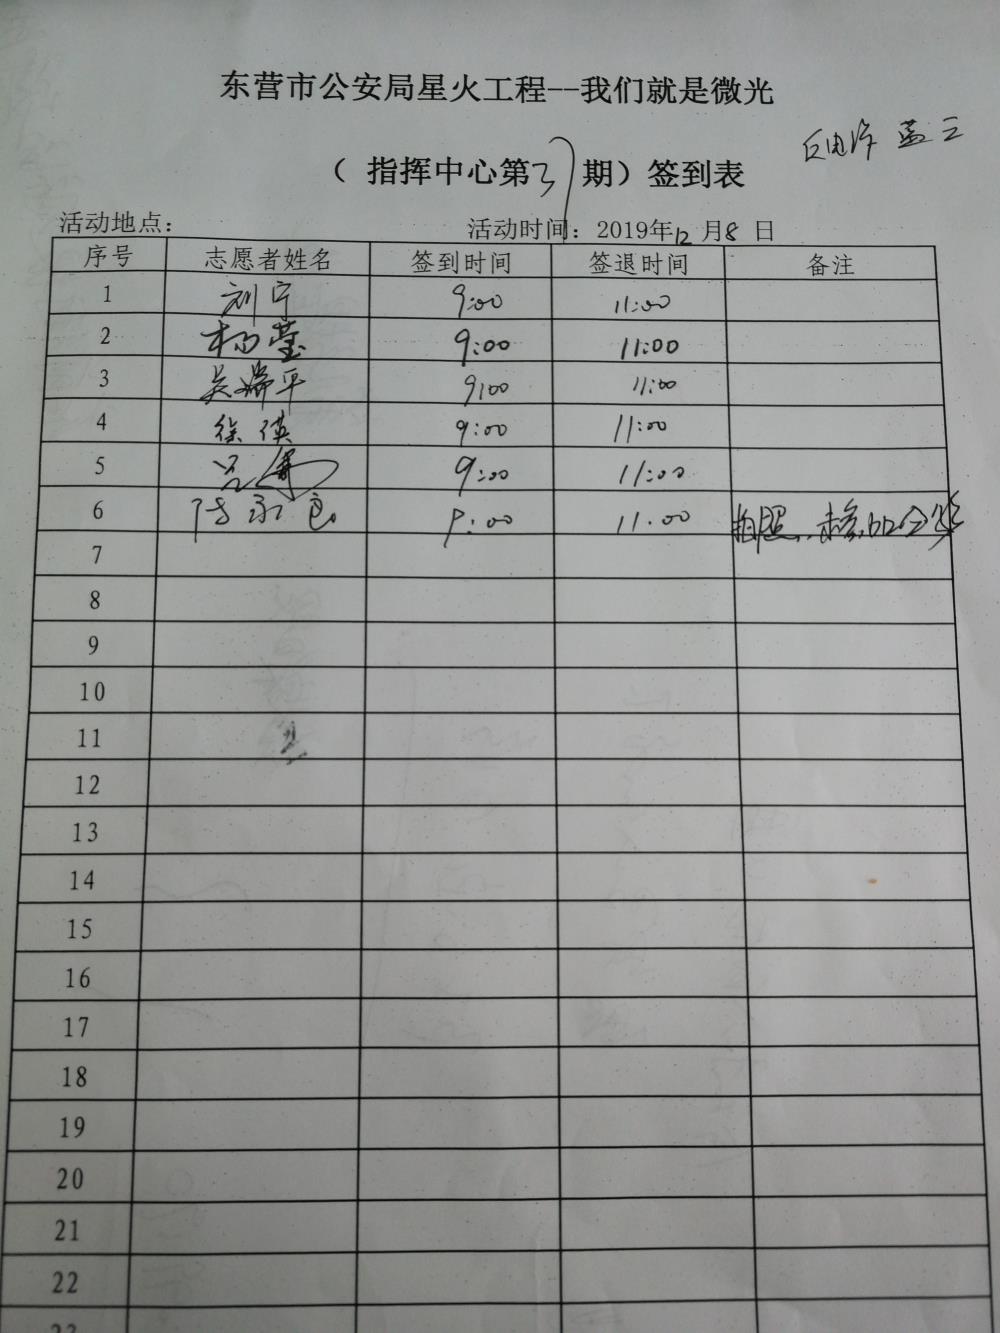 东营市公安局星火工程--我们就是微光
反电诈 盖三
（ 指挥中心第37期）签到表
活动地点： 活动时间：2019年12月8日
序号 志愿者姓名 签到时间 签退时间 备注
1 刘宁 9:00 11:00
2 杨莹 9:00 11:00
3 吴瑞平 9:00 11:00
4 徐瑛 9:00 11:00
5 吕 9:00 11:00
6 陈永良 9:00 11:00 拍照，未参加分发
7
8
9
10
11
12
13
14
15
16
17
18
19
20
21
22
23